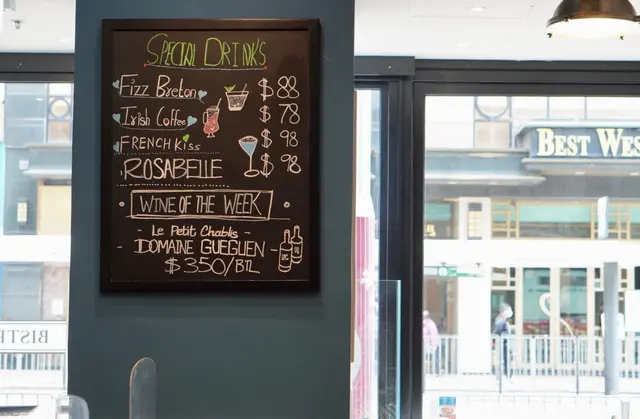 SPECIAL DRINKS
Fizz Breton $ 88
Irish Coffee $ 78
FRENCH Kiss $ 98
ROSABELLE $ 98
WINE OF THE WEEK
- Le Petit Chablis -
- DOMAINE GUEGUEN -
$350/BTL
BEST WES
BISTR